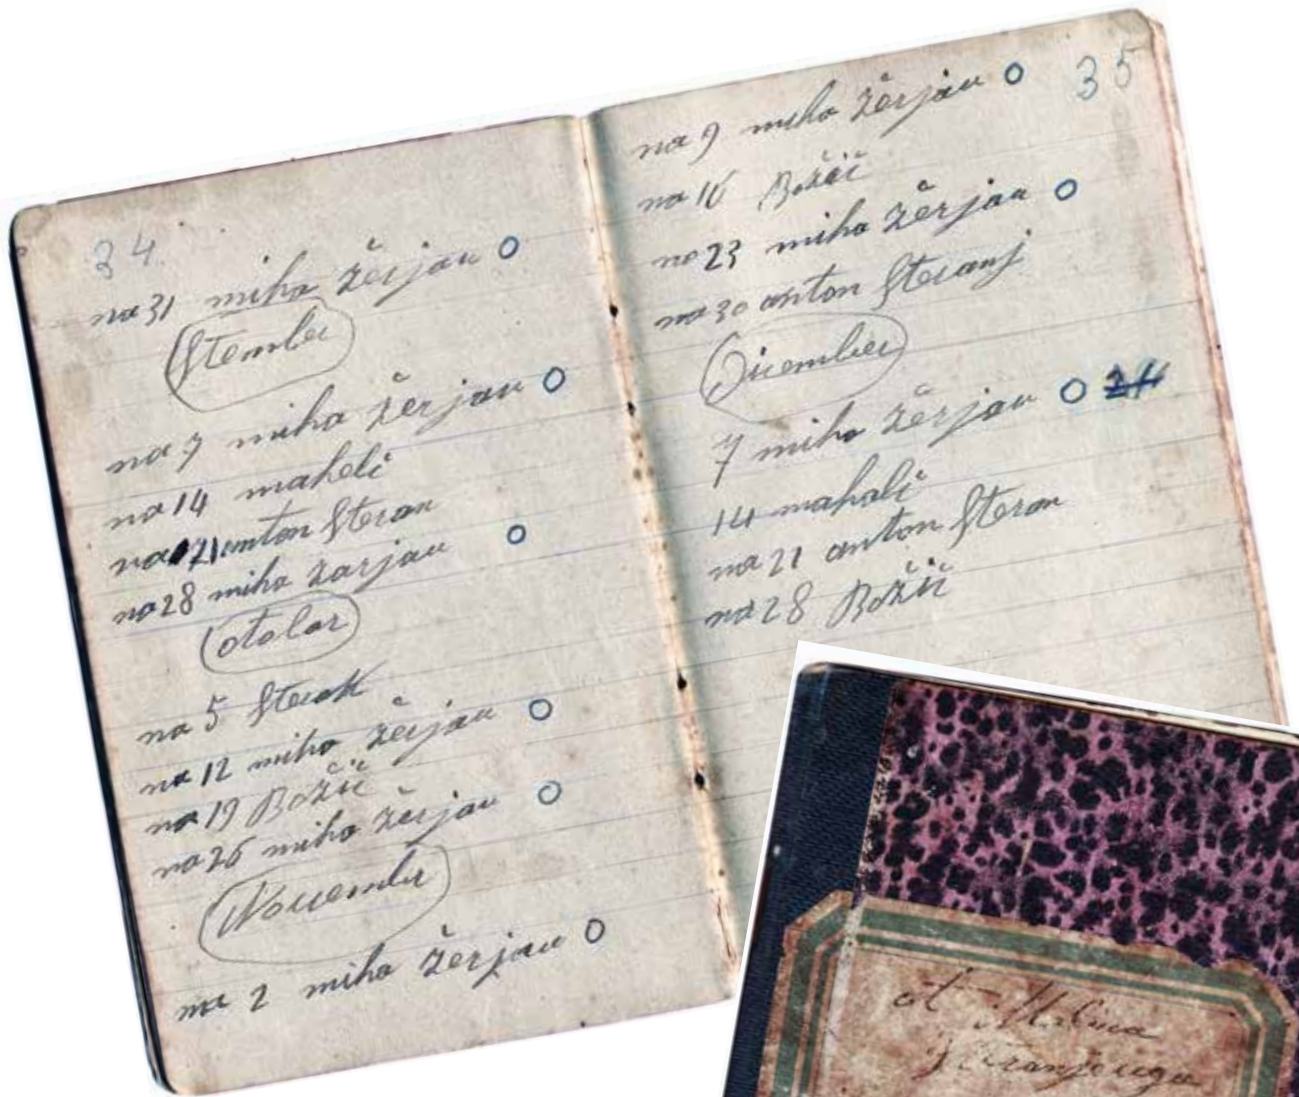 34.
na 31 miho žerjau O
Stember
na 7 miho žerjau O
na 14 maheli
na 21 anton Steran
na 28 miho žarjau O
otobar
na 5
na 12 miho žerjau O
na 19 Božič
na 26 miho žerjau O
Nouember
na 2 miho žerjau O
35
na 9 miho žerjau O
na 16 Božič
na 23 miho žerjau O
na 30 anton Steranj
Dicember
7 miho žerjau O
14 mahali
na 21 anton Steran
na 28 Božič
ot Malna